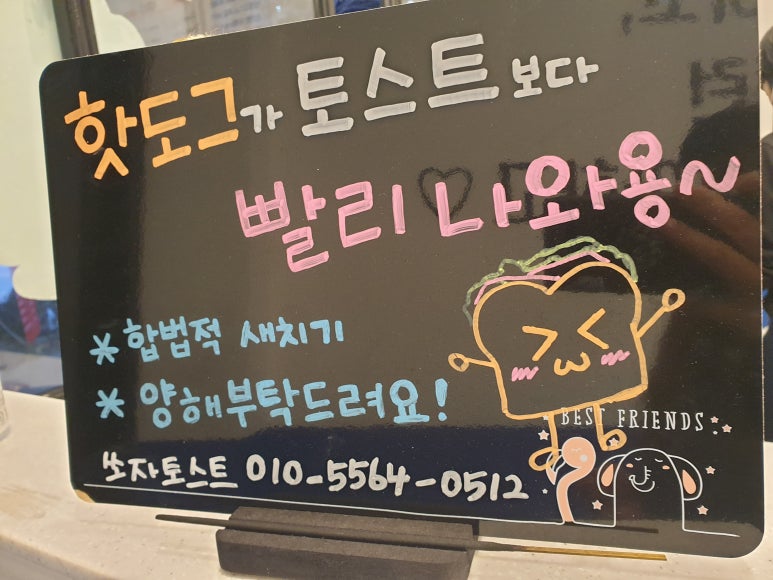 핫도그가 토스트보다
빨리 나와용~
* 합법적 새치기
* 양해부탁드려요!
BEST FRIENDS
쏘자토스트 010-5564-0512